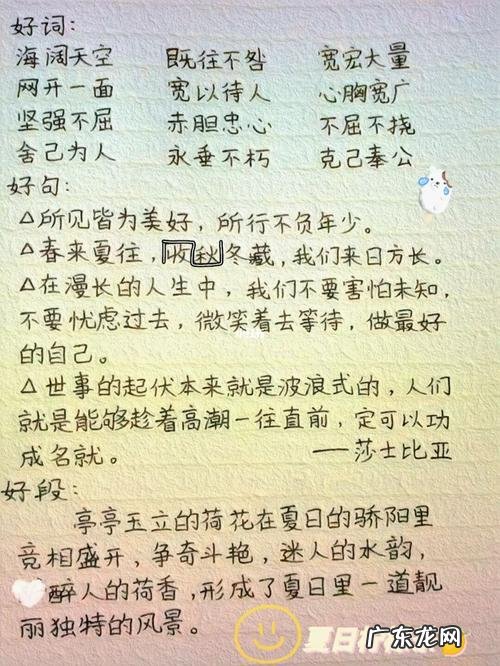 好词：
海阔天空 既往不咎 宽宏大量
网开一面 宽以待人 心胸宽广
坚强不屈 赤胆忠心 不屈不挠
舍己为人 永垂不朽 克己奉公
好句：
△所见皆为美好，所行不负年少。
△春来夏往，收秋冬藏，我们来日方长。
△在漫长的人生中，我们不要害怕未知，
不要忧虑过去，微笑着去等待，做最好
的自己。
△世事的起伏本来就是波浪式的，人们
就是能够趁着高潮一往直前，定可以功
成名就。 ——莎士比亚
好段：
亭亭玉立的荷花在夏日的骄阳里
竞相盛开，争奇斗艳，迷人的水韵，
醉人的荷香，形成了夏日里一道靓
丽独特的风景。
夏日
广东龙网